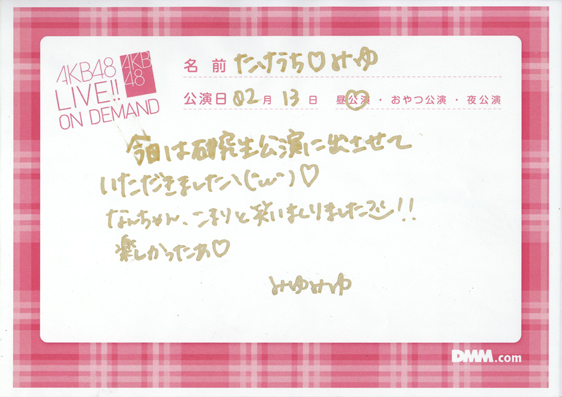 AKB48
LIVE!!
ON DEMAND
AKB
48
名前 たけうち♡みゆ
公演日 02月 13日 昼公演・おやつ公演・夜公演
今日は研究生公演に出させて
いただきました\(´ω`)♡
なんちゃん、こまりと笑いまくりました!!
楽しかったぁ♡
みゆみゆ
DMM.com